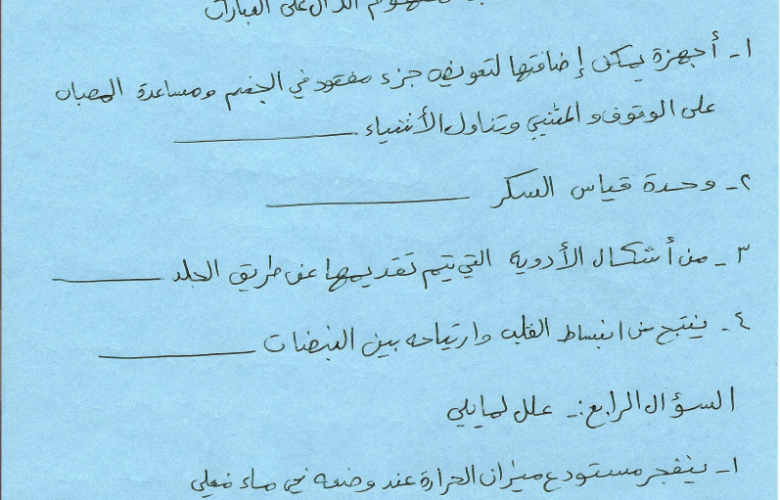 مفهوم الدال على العبارات
١- أجهزة يمكن إضافتها لتعويض جزء مفقود في الجسم ومساعدة المصاب
على الوقوف و المشي وتناول الأشياء
٢- وحدة قياس السكر
٣- من أشكال الأدوية التي يتم تقديمها عن طريق الجلد
٤- ينتج من انبساط القلب وارتياحه بين النبضات
السؤال الرابع:- علل لما يلي
١- ينفجر مستودع ميزان الحرارة عند وضعه في ماء مغلي